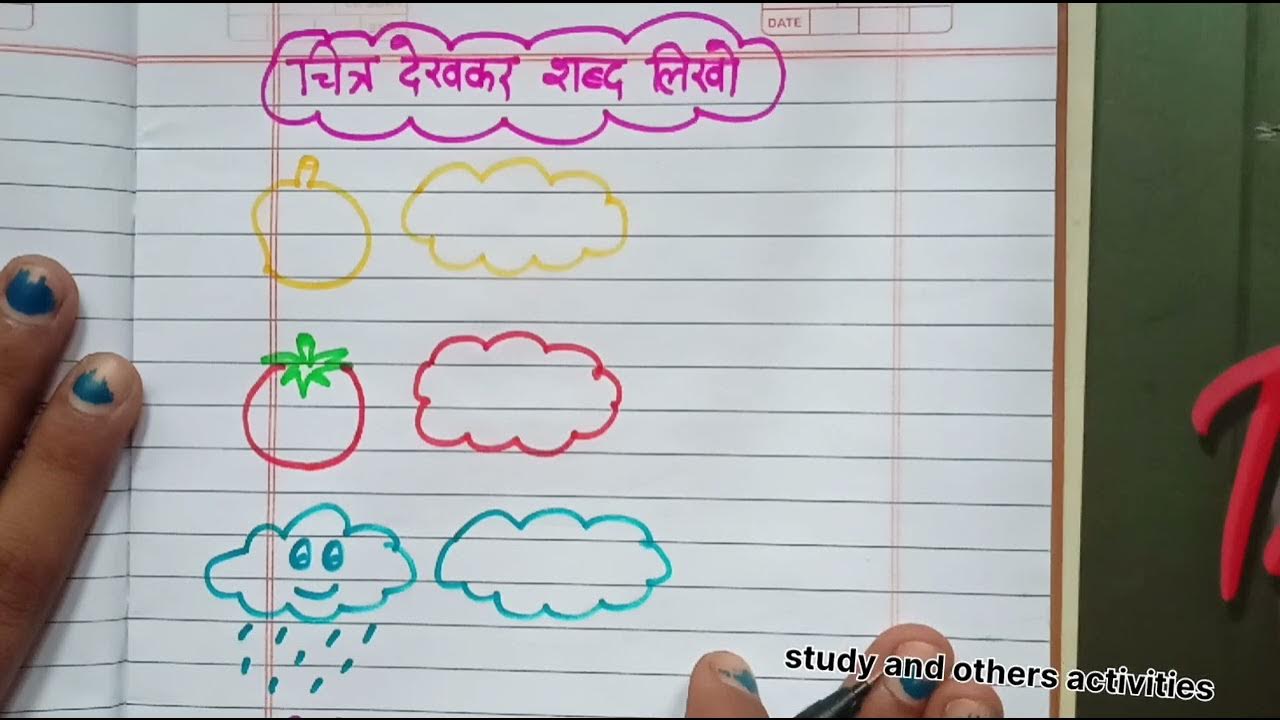 DATE
चित्र देखकर शब्द लिखो
study and others activities